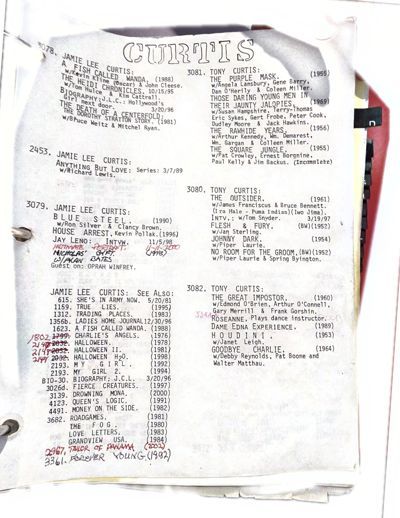 CURTIS
3078. JAMIE LEE CURTIS:
A FISH CALLED WANDA. (1988)
w/Kevin Kline (Oscar) & John Cleese.
THE HEIDI CHRONICLES. 10/15/95
w/Tom Hulce & Kim Cattrall
BIOGRAPHY:J.L.C: Hollywood's
Girl next door. 3/20/96
THE DEATH OF A CENTERFOLD:
THE DOROTHY STRATTON STORY. (1981)
w/Bruce Weitz & Mitchel Ryan.
2453. JAMIE LEE CURTIS:
ANYTHING BUT LOVE: Series: 3/7/89
w/Richard Lewis.
3079. JAMIE LEE CURTIS:
BLUE STEEL. (1990)
w/Ron Silver & Clancy Brown.
HOUSE ARREST. Kevin Pollak. (1996)
JAY LENO: INTVW. 11/5/98
NICHOLAS' GIFT (1998)
W/ALAN BATES
Guest on: OPRAH WINFREY.
JAMIE LEE CURTIS: SEE ALSO:
615. SHE'S IN ARMY NOW. 5/20/81
1159. TRUE LIES. (1995)
1312. TRADING PLACES. (1983)
1356b. LADIES HOME JOURNAL 12/30/96
1623. A FISH CALLED WANDA. (1988)
1802. HALLOWEEN. (1978)
2148. 2032. HALLOWEEN II. (1981)
2032. HALLOWEEN H2O. (1998)
2193. MY GIRL. (1992)
2193. MY GIRL 2. (1994)
BIO-30. BIOGRAPHY: J.C.L. 3/20/96
3026d. FIERCE CREATURES. (1997)
3139. DROWNING MONA. (2000)
4123. QUEEN'S LOGIC. (1991)
4491. MONEY ON THE SIDE. (1982)
3682. ROADGAMES. (1981)
THE FOG. (1980)
LOVE LETTERS. (1983)
GRANDVIEW USA. (1984)
2967. TAILOR OF PANAMA (2002)
3361. FOREVER YOUNG (1992)
3081. TONY CURTIS:
THE PURPLE MASK. (1955)
w/Angela Lansbury, Gene Barry,
Dan O'Herily & Coleen Miller.
THOSE DARING YOUNG MEN IN
THEIR JAUNTY JALOPIES. (1969)
w/Susan Hampshire, Terry-Thomas
Eric Sykes, Gert Frobe, Peter Cook,
Dudley Moore & Jack Hawkins.
THE RAWHIDE YEARS. (1956)
w/Arthur Kennedy, Wm. Demarest,
Wm. Gargan & Colleen Miller.
THE SQUARE JUNGLE. (1955)
w/Pat Crowley, Ernest Borgnine,
Paul Kelly & Jim Backus. (Incomplete)
3080. TONY CURTIS:
THE OUTSIDER. (1961)
w/James Franciscus & Bruce Bennett.
(Ira Hale - Puma Indian)(Iwo Jima).
INTV.: w/Tom Snyder. 3/19/97
FLESH & FURY. (BW)(1952)
w/Jan Sterling.
JOHNNY DARK. (1954)
w/Piper Laurie.
NO ROOM FOR THE GROOM.(BW)(1952)
w/Piper Laurie & Spring Byington.
3082. TONY CURTIS:
THE GREAT IMPOSTOR. (1960)
w/Edmond O'Brien, Arthur O'Connell,
Gary Merrill & Frank Gorshin.
ROSEANNE. Plays dance instructor.
DAME EDNA EXPERIENCE. (1989)
HOUDINI. (1953)
w/Janet Leigh.
GOODBYE CHARLIE. (1964)
w/Debby Reynolds, Pat Boone and
Walter Matthau.